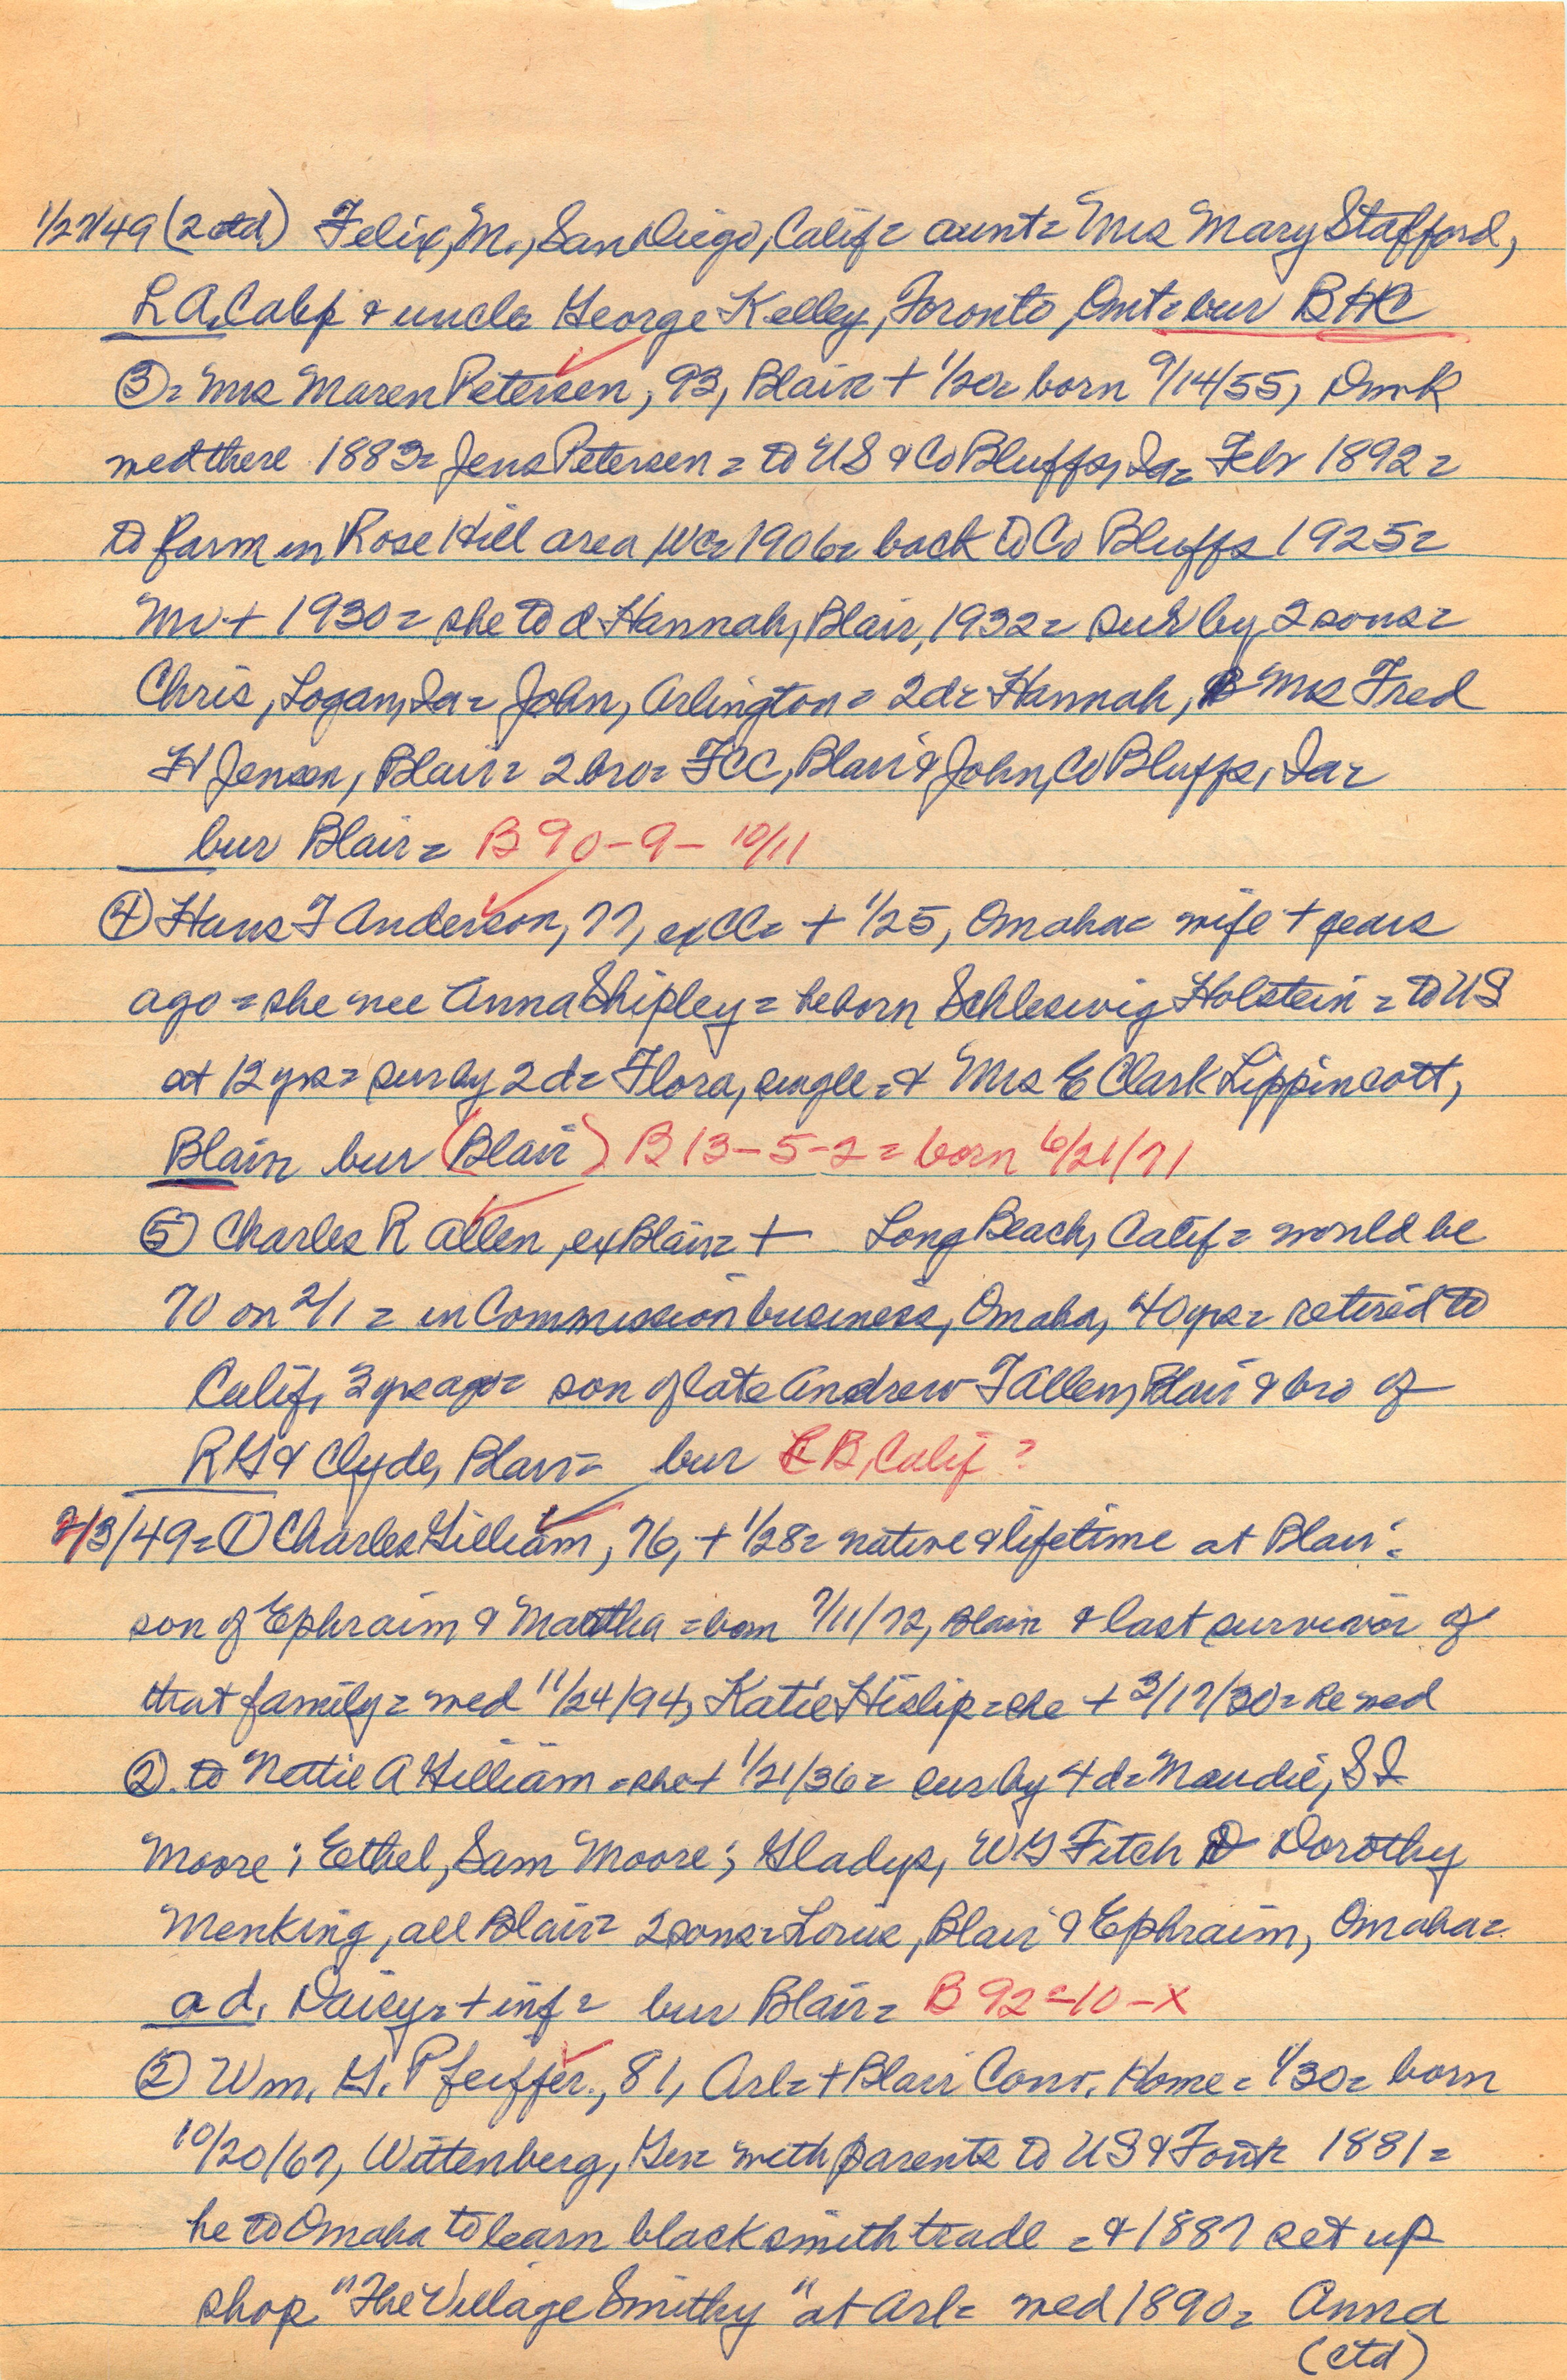 1/27/49 (2 ctd) Felix, M., San Diego, Calif = aunt = Mrs Mary Stafford,
L A, Calif & uncle George Kelley, Toronto, Ont = bur BHC
③ = Mrs Maren Petersen, 93, Blair + 1/20 = born 9/14/55, Dmk
med there 1883 = Jens Petersen = to US & Co Bluffs, Ia = Febr 1892 =
to farm in Rose Hill area, WC = 1906 = back to Co Bluffs 1925 =
Mr + 1930 = she to d Hannah, Blair, 1932 = sur by 2 sons =
Chris, Logan, Ia = John, Arlington = 2d = Hannah, Mrs Fred
H Jensen, Blair = 2 bro = FCC, Blair & John, Co Bluffs, Ia =
bur Blair = B 90-9-10/11
④ Hans F Anderson, 77, ex CC = + 1/25, Omaha = wife + years
ago = she nee Anna Shipley = he born Schleswig Holstein = to US
at 12 yrs = sur by 2 d = Flora, single = & Mrs E Clark Lippincott,
Blair bur (Blair) B 13-5-2 = born 6/21/71
⑤ Charles R Allen, ex Blair = + Long Beach, Calif = would be
70 on 2/1 = in Commission business, Omaha, 40 yrs = retired to
Calif, 3 yrs ago = son of late Andrew F Allen, Blair & bro of
R G & Clyde, Blair = bur LB, Calif ?
2/3/49 = ① Charles Gilliam, 76, + 1/28 = native & lifetime at Blair =
son of Ephraim & Martha = born 7/11/72, Blair & last survivor of
that family = med 11/24/94, Katie Hislip = she + 3/17/30 = he med
②. to Nettie A Gilliam = she + 1/21/36 = sur by 4 d = Maudie, S I
Moore ; Ethel, Sam Moore ; Gladys, W G Fitch Dorothy
Menking, all Blair = 2 sons = Blair & Ephraim, Omaha =
a d, Daisy = + inf = bur Blair = B 92-10-X
② Wm. G. Pfeiffer, 81, Arl = + Blair Conv. Home = 1/30 = born
10/20/67, Wittenberg, Ger = with parents to US & Font 1881 =
he to Omaha to learn blacksmith trade = & 1887 set up
shop "The Village Smithy" at Arl = med 1890 = Anna
(ctd)